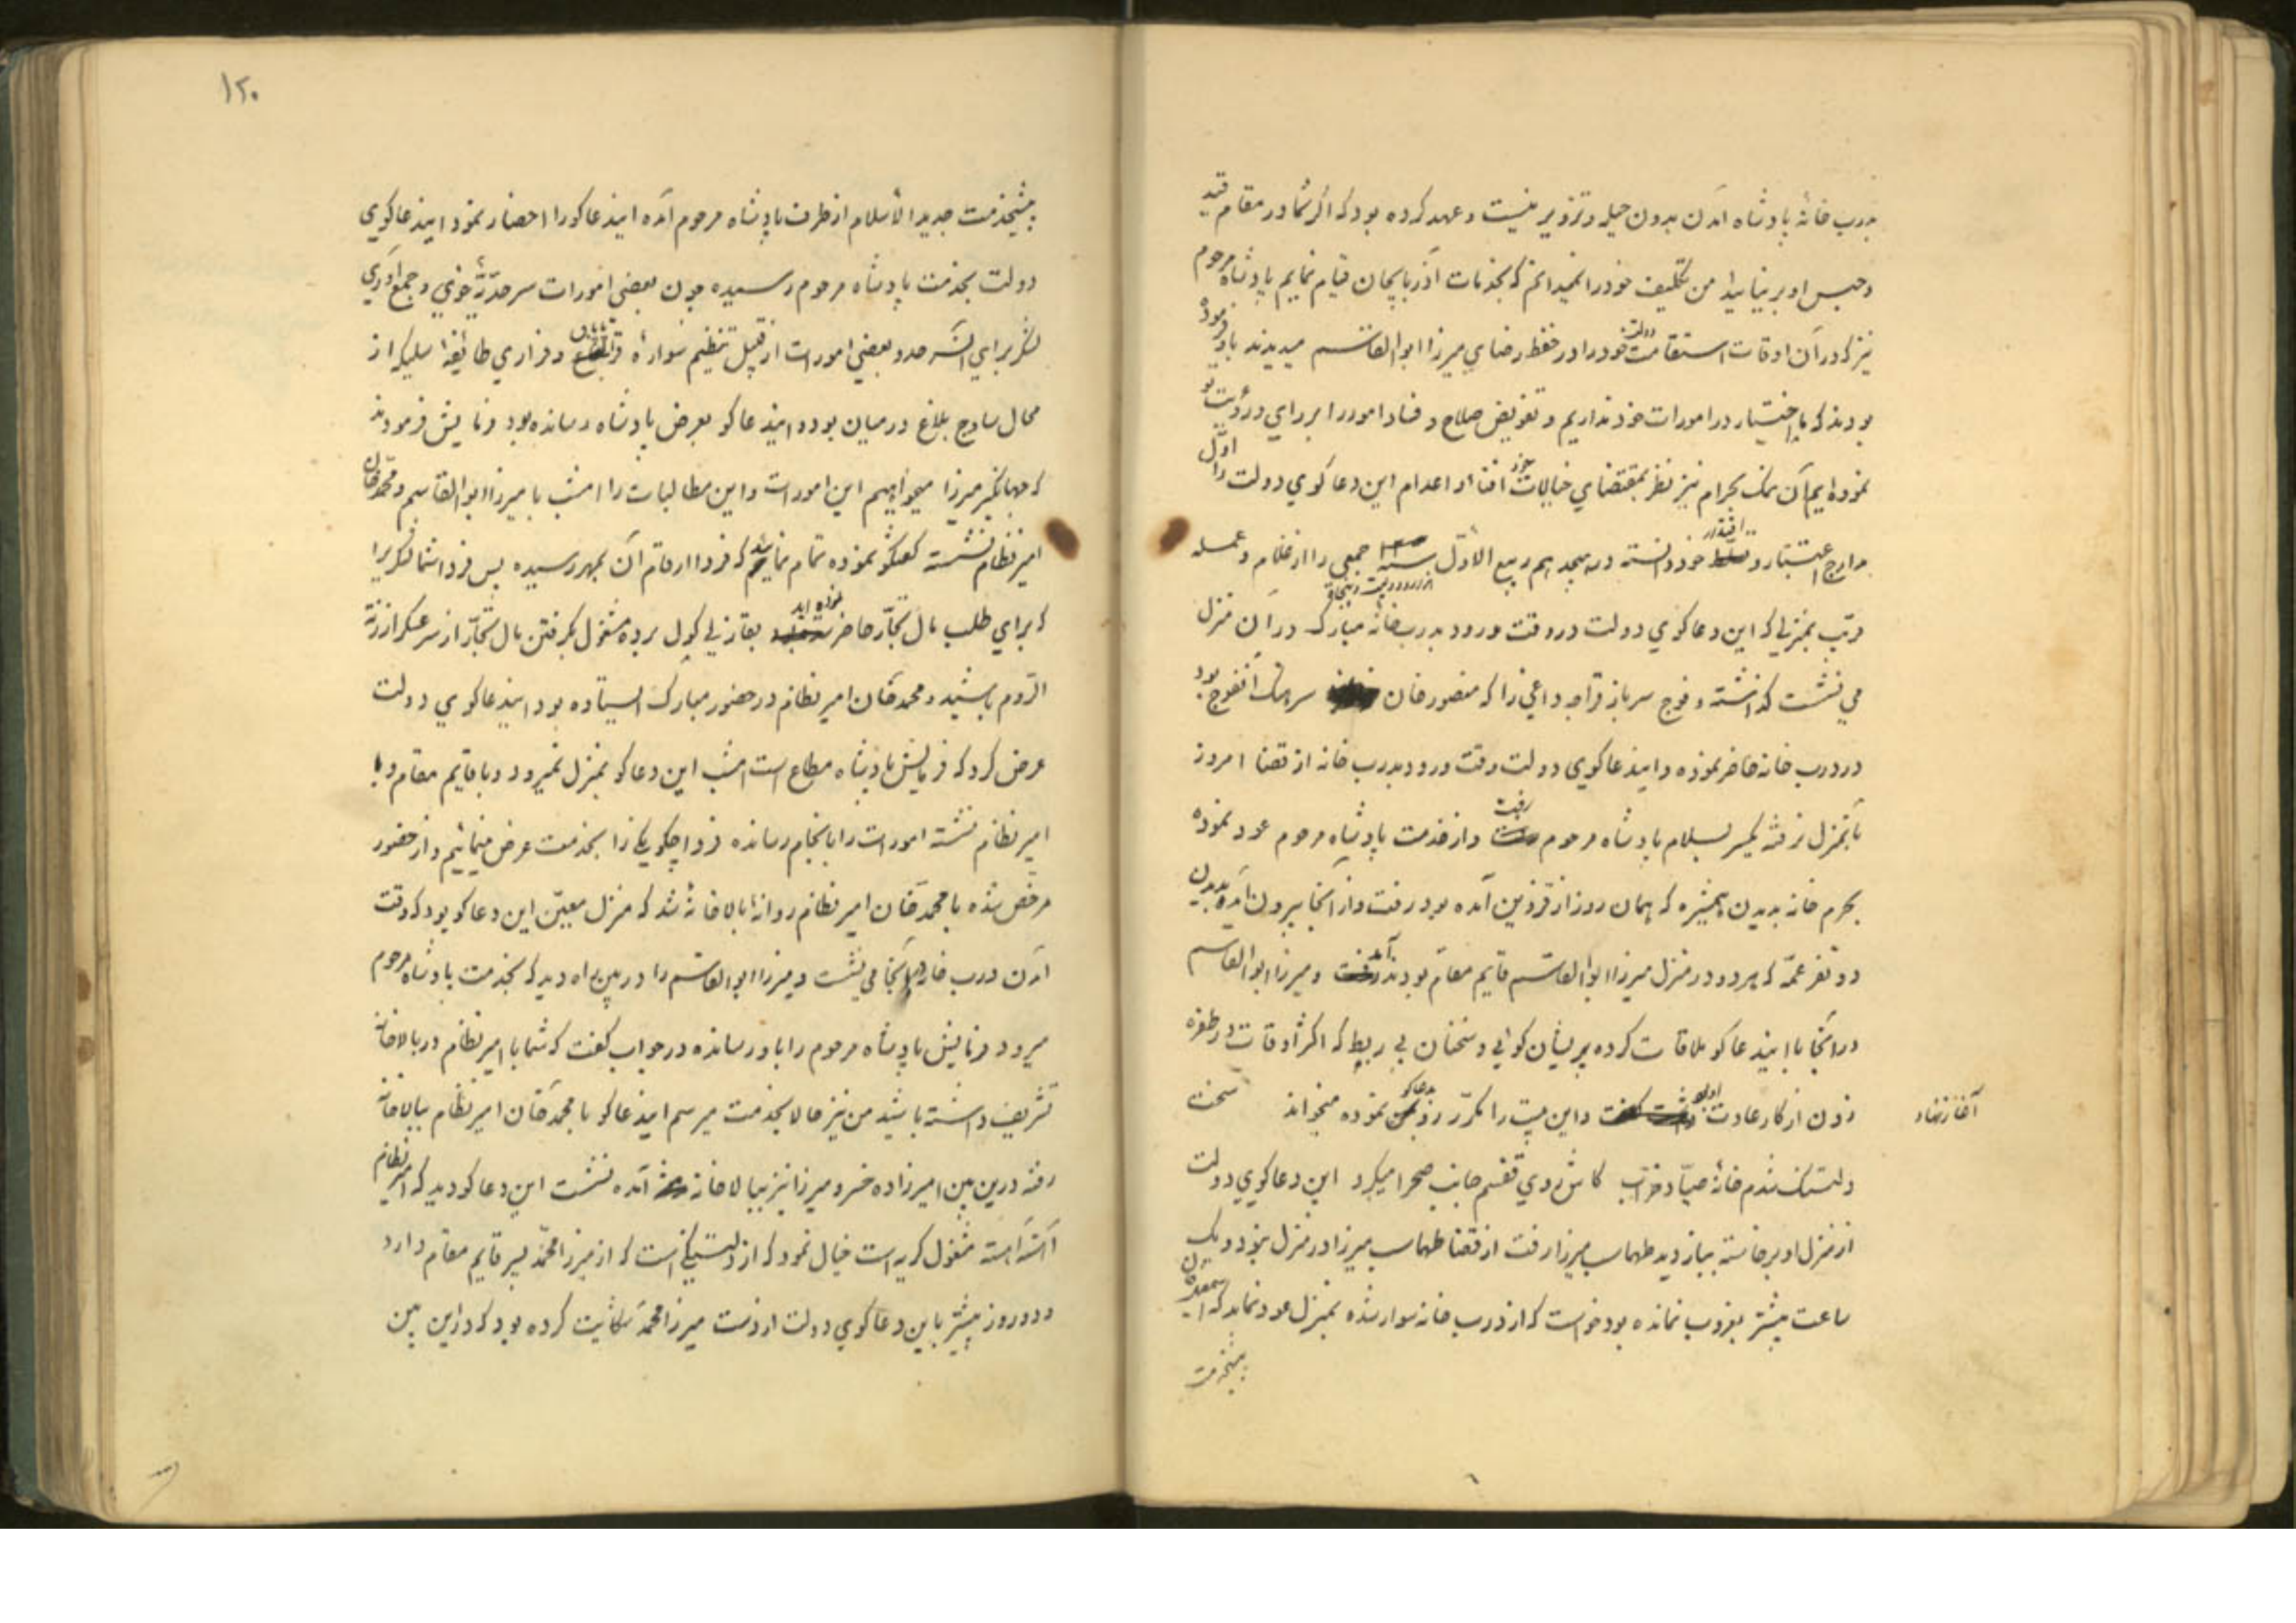 بدرب خانهٔ پادشاه آمدن بدون حیله و تزویر نیست و عهد کرده بود که اگر شما در مقام قید
و حبس او بر نیایید من تکلیف خود را نمیدانم که بخدمات آذربایجان قیام نمایم پادشاه مرحوم
نیز که در آن اوقات استقامت دولت خود را در حفظ رضای میرزا ابوالقاسم میدیدند باو فرموده
بودند که ما اختیار در امورات خود نداریم و تفویض صلاح و فساد امور را بر رای و رؤیت تو
نموده ایم آن نمک بحرام نیز نظر بمقتضای خیالات خود افناد و اعدام این دعا کوی دولت را اول
مدارج اعتبار و اقتدار خود دانسته در هیجدهم ربیع الاول سنه جمعی را از غلام و عمله
مرتب بمنزلی که این دعا کوی دولت در وقت ورود بدرب خانهٔ مبارکه در آن منزل
می نشست کذاشته و فوج سرباز قراجه داغی را که منصور خان سرهنک آنفوج بود
در درب خانه حاضر نموده و اینذعا کوی دولت وقت ورود بدرب خانه از قضا امروز
بآنمنزل نرفته یکسر بسلام پادشاه مرحوم رفت و از خدمت پادشاه مرحوم عود نموده
بحرم خانه بدیدن همشیره که همان روز از قزوین آمده بود رفت و از آنجا بیرون آمده بدیدن
دو نفر عمه که هر دو در منزل میرزا ابوالقاسم قایم مقام بودند آمد و میرزا ابوالقاسم
در آنجا با اینذعا کو ملاقات کرده پریشان کوئی و سخنان بی ربط که اکثر اوقات در طفره
زدن از کار عادت او بود و این بیت را مکرر رو بدعاکو نموده میخواند سخت
آغاز نهاد
دلتنک شدم خانهٔ صیاد خراب کاش روی قفسم جانب صحرا میکرد این دعا کوی دولت
از منزل او برخاسته ببازدید طهماسب میرزا رفت از قضا طهماسب میرزا در منزل نبود و یک
ساعت بیشتر بغروب نمانده بود خواست که از درب خانه سوار شده بمنزل عود نماید که اسمعیل خان
پیشخدمت
۱۲۰
پیشخدمت جدید الاسلام از طرف پادشاه مرحوم آمده اینذعا کو را احضار نمود اینذعا کوی
دولت بخدمت پادشاه مرحوم رسیده چون بعضی امورات سرحدیهٔ خوی و جمع آوری
لشکر برای آنسرحد و بعضی امورات از قبیل تنظیم سوارهٔ و فراری طائفهٔ از
محال ساوج بلاغ در میان بود و اینذعا کو بعرض پادشاه رسانده بود فرمایش فرمودند
که جهانکیر میرزا میخواهیم این امورات و این مطالبات را امشب با میرزا ابوالقاسم و محمد خان
امیر نظام نشسته کفتکو نموده تمام نمائید که فردا ارقام آن بمهر رسیده پس فردا شما لشکر را
که برای طلب مال تجار حاضر نموده اید بغازلی کول برده مشغول بکرفتن مال تجار از سرعسکر ارزنة
الروم باشید و محمد خان امیر نظام در حضور مبارک ایستاده بود اینذعا کوی دولت
عرض کرد که فرمایش پادشاه مطاع است امشب این دعا کو بمنزل نمیرود و با قایم مقام و با
امیر نظام نشسته امورات را بانجام رسانده فردا چکونکی را بخدمت عرض مینمائیم و از حضور
مرخص شده با محمد خان امیر نظام روانهٔ بالا خانه شد که منزل معین این دعا کو بود که وقت
آمدن درب خانه در آنجا می نشست و میرزا ابوالقاسم را در بین راه دید که بخدمت پادشاه مرحوم
میرود فرمایش پادشاه مرحوم را باو رسانده در جواب کفت که شما با امیر نظام در بالا خانه
تشریف داشته باشید من نیز حالا بخدمت میرسم اینذعا کو با محمد خان امیر نظام ببالا خانه
رفته درین بین امیرزاده خسرو میرزا نیز ببالا خانه آمده نشست این دعا کو دید که امیر نظام
آهسته آهسته مشغول کریه است خیال نمود که از دلتنکی است که از میرزا محمد پسر قایم مقام دارد
و دو روز پیشتر باین دعا کوی دولت از دست میرزا محمد شکایت کرده بود که در این بین